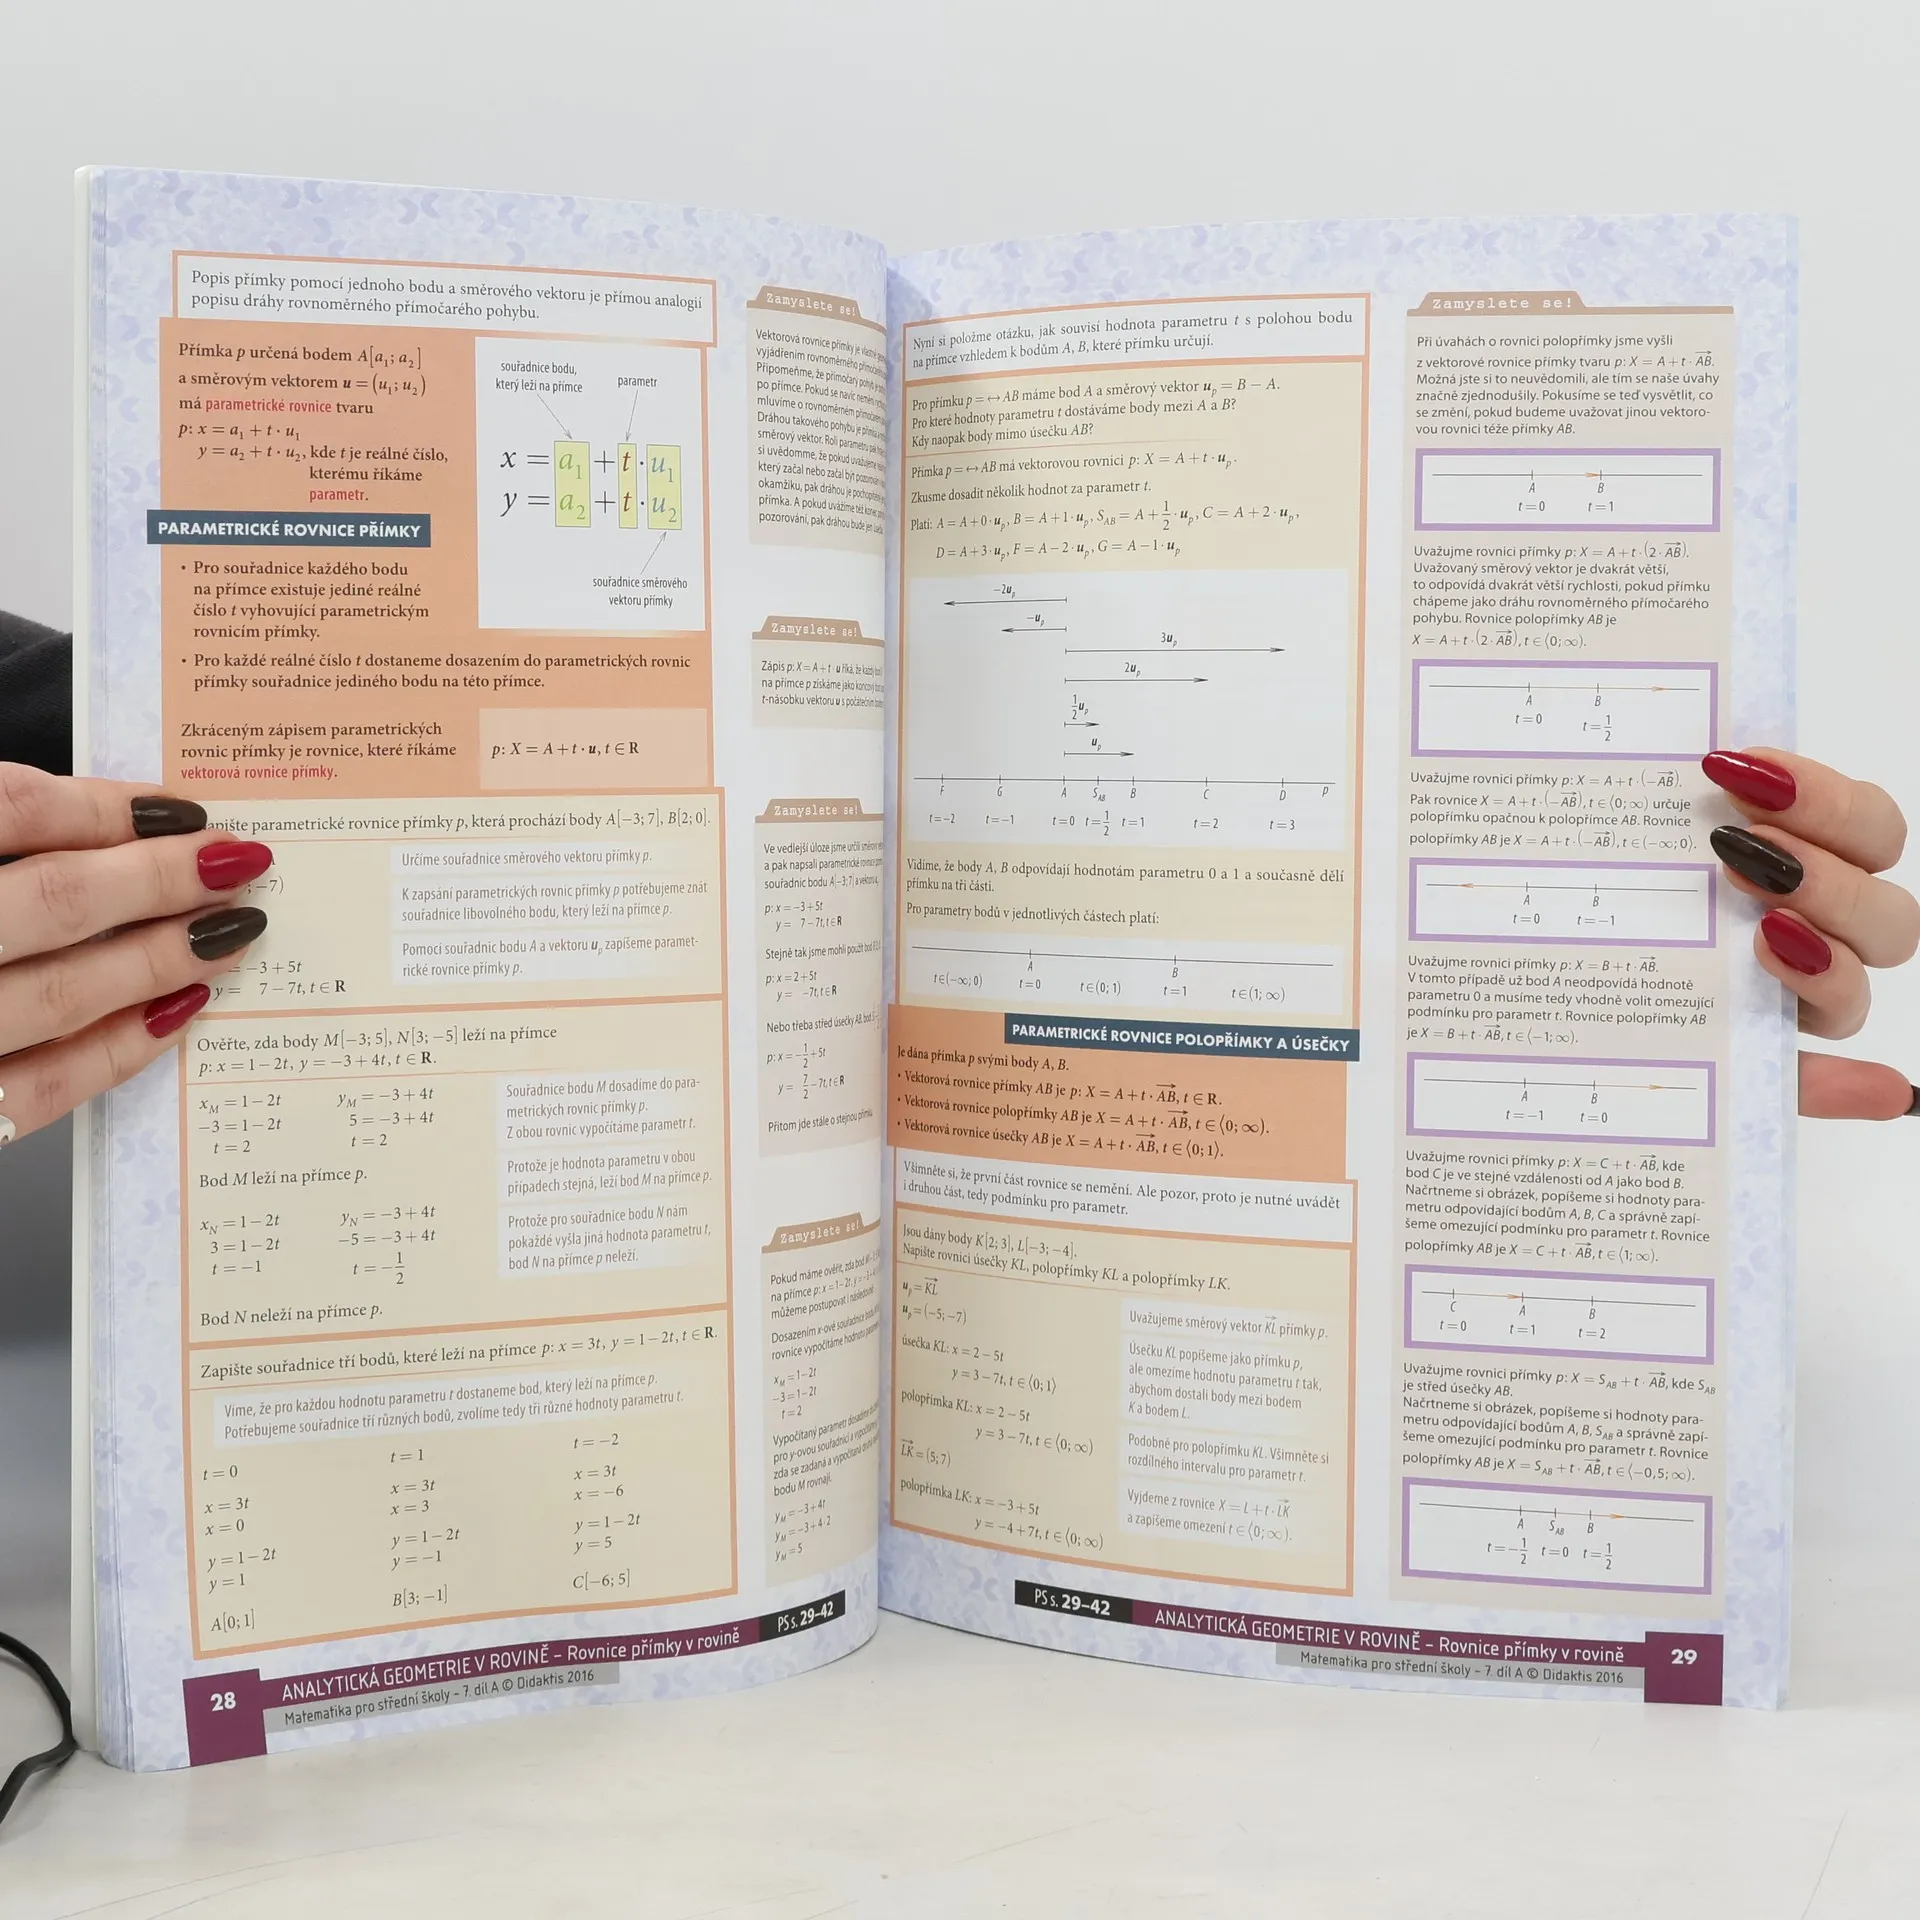 Popis přímky pomocí jednoho bodu a směrového vektoru je přímou analogií
popisu dráhy rovnoměrného přímočarého pohybu.
Přímka p určená bodem A[a₁; a₂]
a směrovým vektorem u = (u₁; u₂)
má parametrické rovnice tvaru
p: x = a₁ + t · u₁
y = a₂ + t · u₂, kde t je reálné číslo,
kterému říkáme
parametr.
souřadnice bodu,
který leží na přímce
parametr
x = a₁ + t · u₁
y = a₂ + t · u₂
souřadnice směrového
vektoru přímky
PARAMETRICKÉ ROVNICE PŘÍMKY
• Pro souřadnice každého bodu
na přímce existuje jediné reálné
číslo t vyhovující parametrickým
rovnicím přímky.
• Pro každé reálné číslo t dostaneme dosazením do parametrických rovnic
přímky souřadnice jediného bodu na této přímce.
Zkráceným zápisem parametrických
rovnic přímky je rovnice, které říkáme
vektorová rovnice přímky.
p: X = A + t · u, t ∈ R
parametrické rovnice přímky p, která prochází body A[−3; 7], B[2; 0].
; −7)
= −3 + 5t
y = 7 − 7t, t ∈ R
Určíme souřadnice směrového vektoru přímky p.
K zapsání parametrických rovnic přímky p potřebujeme znát
souřadnice libovolného bodu, který leží na přímce p.
Pomocí souřadnic bodu A a vektoru uₚ zapíšeme paramet-
rické rovnice přímky p.
Ověřte, zda body M[−3; 5], N[3; −5] leží na přímce
p: x = 1 − 2t, y = −3 + 4t, t ∈ R.
x_M = 1 − 2t y_M = −3 + 4t
−3 = 1 − 2t 5 = −3 + 4t
t = 2 t = 2
Bod M leží na přímce p.
x_N = 1 − 2t y_N = −3 + 4t
3 = 1 − 2t −5 = −3 + 4t
t = −1 t = −1/2
Bod N neleží na přímce p.
Souřadnice bodu M dosadíme do para-
metrických rovnic přímky p.
Z obou rovnic vypočítáme parametr t.
Protože je hodnota parametru v obou
případech stejná, leží bod M na přímce p.
Protože pro souřadnice bodu N nám
pokaždé vyšla jiná hodnota parametru t,
bod N na přímce p neleží.
Zapište souřadnice tří bodů, které leží na přímce p: x = 3t, y = 1 − 2t, t ∈ R.
Víme, že pro každou hodnotu parametru t dostaneme bod, který leží na přímce p.
Potřebujeme souřadnice tří různých bodů, zvolíme tedy tři různé hodnoty parametru t.
t = 0 t = 1 t = −2
x = 3t x = 3t x = 3t
x = 0 x = 3 x = −6
y = 1 − 2t y = 1 − 2t y = 1 − 2t
y = 1 y = −1 y = 5
A[0; 1] B[3; −1] C[−6; 5]
Zamyslete se!
Vektorová rovnice přímky je vlastně
vyjádřením rovnoměrného přímočarého
Připomeňme, že přímočarý pohyb je
po přímce. Pokud se navíc nemění
mluvíme o rovnoměrném přímočarém
Dráhou takového pohybu je přímka
směrový vektor. Roli parametru
si uvědomme, že pokud uvažujeme
který začal nebo začal být pozorován
okamžiku, pak dráhou je
přímka. A pokud uvážíme též konec
pozorování, pak dráhou bude jen
Zamyslete se!
Zápis p: X = A + t · u říká, že každý
na přímce p získáme jako koncový
t-násobku vektoru u s počátečním
Zamyslete se!
Ve vedlejší úloze jsme určili směrový
a pak napsali parametrické rovnice
souřadnic bodu A[−3; 7] a vektoru
p: x = −3 + 5t
y = 7 − 7t, t ∈ R
Stejně tak jsme mohli použít bod
p: x = 2 + 5t
y = −7t, t ∈ R
Nebo třeba střed úsečky AB, bod
p: x = −1/2 + 5t
y = 7/2 − 7t, t ∈ R
Přitom jde stále o stejnou přímku.
Zamyslete se!
Pokud máme ověřit, zda bod
na přímce p: x = 1 − 2t,
můžeme postupovat i následovně
Dosazením x-ové souřadnice bodu
rovnice vypočítáme hodnotu
x_M = 1 − 2t
−3 = 1 − 2t
t = 2
Vypočítaný parametr dosadíme
pro y-ovou souřadnici a vypočítáme
zda se zadaná a vypočítaná
bodu M rovnají.
y_M = −3 + 4t
y_M = −3 + 4 · 2
y_M = 5
PS s. 29–42
28
ANALYTICKÁ GEOMETRIE V ROVINĚ – Rovnice přímky v rovině
Matematika pro střední školy – 7. díl A © Didaktis 2016
Nyní si položme otázku, jak souvisí hodnota parametru t s polohou bodu
na přímce vzhledem k bodům A, B, které přímku určují.
Pro přímku p = ↔AB máme bod A a směrový vektor uₚ = B − A.
Pro které hodnoty parametru t dostáváme body mezi A a B?
Kdy naopak body mimo úsečku AB?
Přímka p = ↔AB má vektorovou rovnici p: X = A + t · uₚ.
Zkusme dosadit několik hodnot za parametr t.
Platí: A = A + 0 · uₚ, B = A + 1 · uₚ, S_AB = A + 1/2 · uₚ, C = A + 2 · uₚ,
D = A + 3 · uₚ, F = A − 2 · uₚ, G = A − 1 · uₚ
−2uₚ
−uₚ
3uₚ
2uₚ
1/2 uₚ
uₚ
F G A S_AB B C D p
t = −2 t = −1 t = 0 t = 1/2 t = 1 t = 2 t = 3
Vidíme, že body A, B odpovídají hodnotám parametru 0 a 1 a současně dělí
přímku na tři části.
Pro parametry bodů v jednotlivých částech platí:
A B
t ∈ (−∞; 0) t = 0 t ∈ (0; 1) t = 1 t ∈ (1; ∞)
PARAMETRICKÉ ROVNICE POLOPŘÍMKY A ÚSEČKY
Je dána přímka p svými body A, B.
• Vektorová rovnice přímky AB je p: X = A + t · AB, t ∈ R.
• Vektorová rovnice polopřímky AB je X = A + t · AB, t ∈ ⟨0; ∞).
• Vektorová rovnice úsečky AB je X = A + t · AB, t ∈ ⟨0; 1⟩.
Všimněte si, že první část rovnice se nemění. Ale pozor, proto je nutné uvádět
i druhou část, tedy podmínku pro parametr.
Jsou dány body K[2; 3], L[−3; −4].
Napište rovnici úsečky KL, polopřímky KL a polopřímky LK.
uₚ = KL
uₚ = (−5; −7)
úsečka KL: x = 2 − 5t
y = 3 − 7t, t ∈ ⟨0; 1⟩
polopřímka KL: x = 2 − 5t
y = 3 − 7t, t ∈ ⟨0; ∞)
LK = (5; 7)
polopřímka LK: x = −3 + 5t
y = −4 + 7t, t ∈ ⟨0; ∞)
Uvažujeme směrový vektor KL přímky p.
Úsečku KL popíšeme jako přímku p,
ale omezíme hodnotu parametru t tak,
abychom dostali body mezi bodem
K a bodem L.
Podobně pro polopřímku KL. Všimněte si
rozdílného intervalu pro parametr t.
Vyjdeme z rovnice X = L + t · LK
a zapíšeme omezení t ∈ ⟨0; ∞).
Zamyslete se!
Při úvahách o rovnici polopřímky jsme vyšli
z vektorové rovnice přímky tvaru p: X = A + t · AB.
Možná jste si to neuvědomili, ale tím se naše úvahy
značně zjednodušily. Pokusíme se teď vysvětlit, co
se změní, pokud budeme uvažovat jinou vektoro-
vou rovnici téže přímky AB.
A B
t = 0 t = 1
Uvažujme rovnici přímky p: X = A + t · (2 · AB).
Uvažovaný směrový vektor je dvakrát větší,
to odpovídá dvakrát větší rychlosti, pokud přímku
chápeme jako dráhu rovnoměrného přímočarého
pohybu. Rovnice polopřímky AB je
X = A + t · (2 · AB), t ∈ ⟨0; ∞).
A B
t = 0 t = 1/2
Uvažujme rovnici přímky p: X = A + t · (−AB).
Pak rovnice X = A + t · (−AB), t ∈ ⟨0; ∞) určuje
polopřímku opačnou k polopřímce AB. Rovnice
polopřímky AB je X = A + t · (−AB), t ∈ (−∞; 0⟩.
A B
t = 0 t = −1
Uvažujme rovnici přímky p: X = B + t · AB.
V tomto případě už bod A neodpovídá hodnotě
parametru 0 a musíme tedy vhodně volit omezující
podmínku pro parametr t. Rovnice polopřímky AB
je X = B + t · AB, t ∈ ⟨−1; ∞).
A B
t = −1 t = 0
Uvažujme rovnici přímky p: X = C + t · AB, kde
bod C je ve stejné vzdálenosti od A jako bod B.
Načrtneme si obrázek, popíšeme si hodnoty para-
metru odpovídající bodům A, B, C a správně zapí-
šeme omezující podmínku pro parametr t. Rovnice
polopřímky AB je X = C + t · AB, t ∈ ⟨1; ∞).
C A B
t = 0 t = 1 t = 2
Uvažujme rovnici přímky p: X = S_AB + t · AB, kde S_AB
je střed úsečky AB.
Načrtneme si obrázek, popíšeme si hodnoty para-
metru odpovídající bodům A, B, S_AB a správně zapí-
šeme omezující podmínku pro parametr t. Rovnice
polopřímky AB je X = S_AB + t · AB, t ∈ ⟨−0,5; ∞).
A S_AB B
t = −1/2 t = 0 t = 1/2
PS s. 29–42
ANALYTICKÁ GEOMETRIE V ROVINĚ – Rovnice přímky v rovině
Matematika pro střední školy – 7. díl A © Didaktis 2016
29